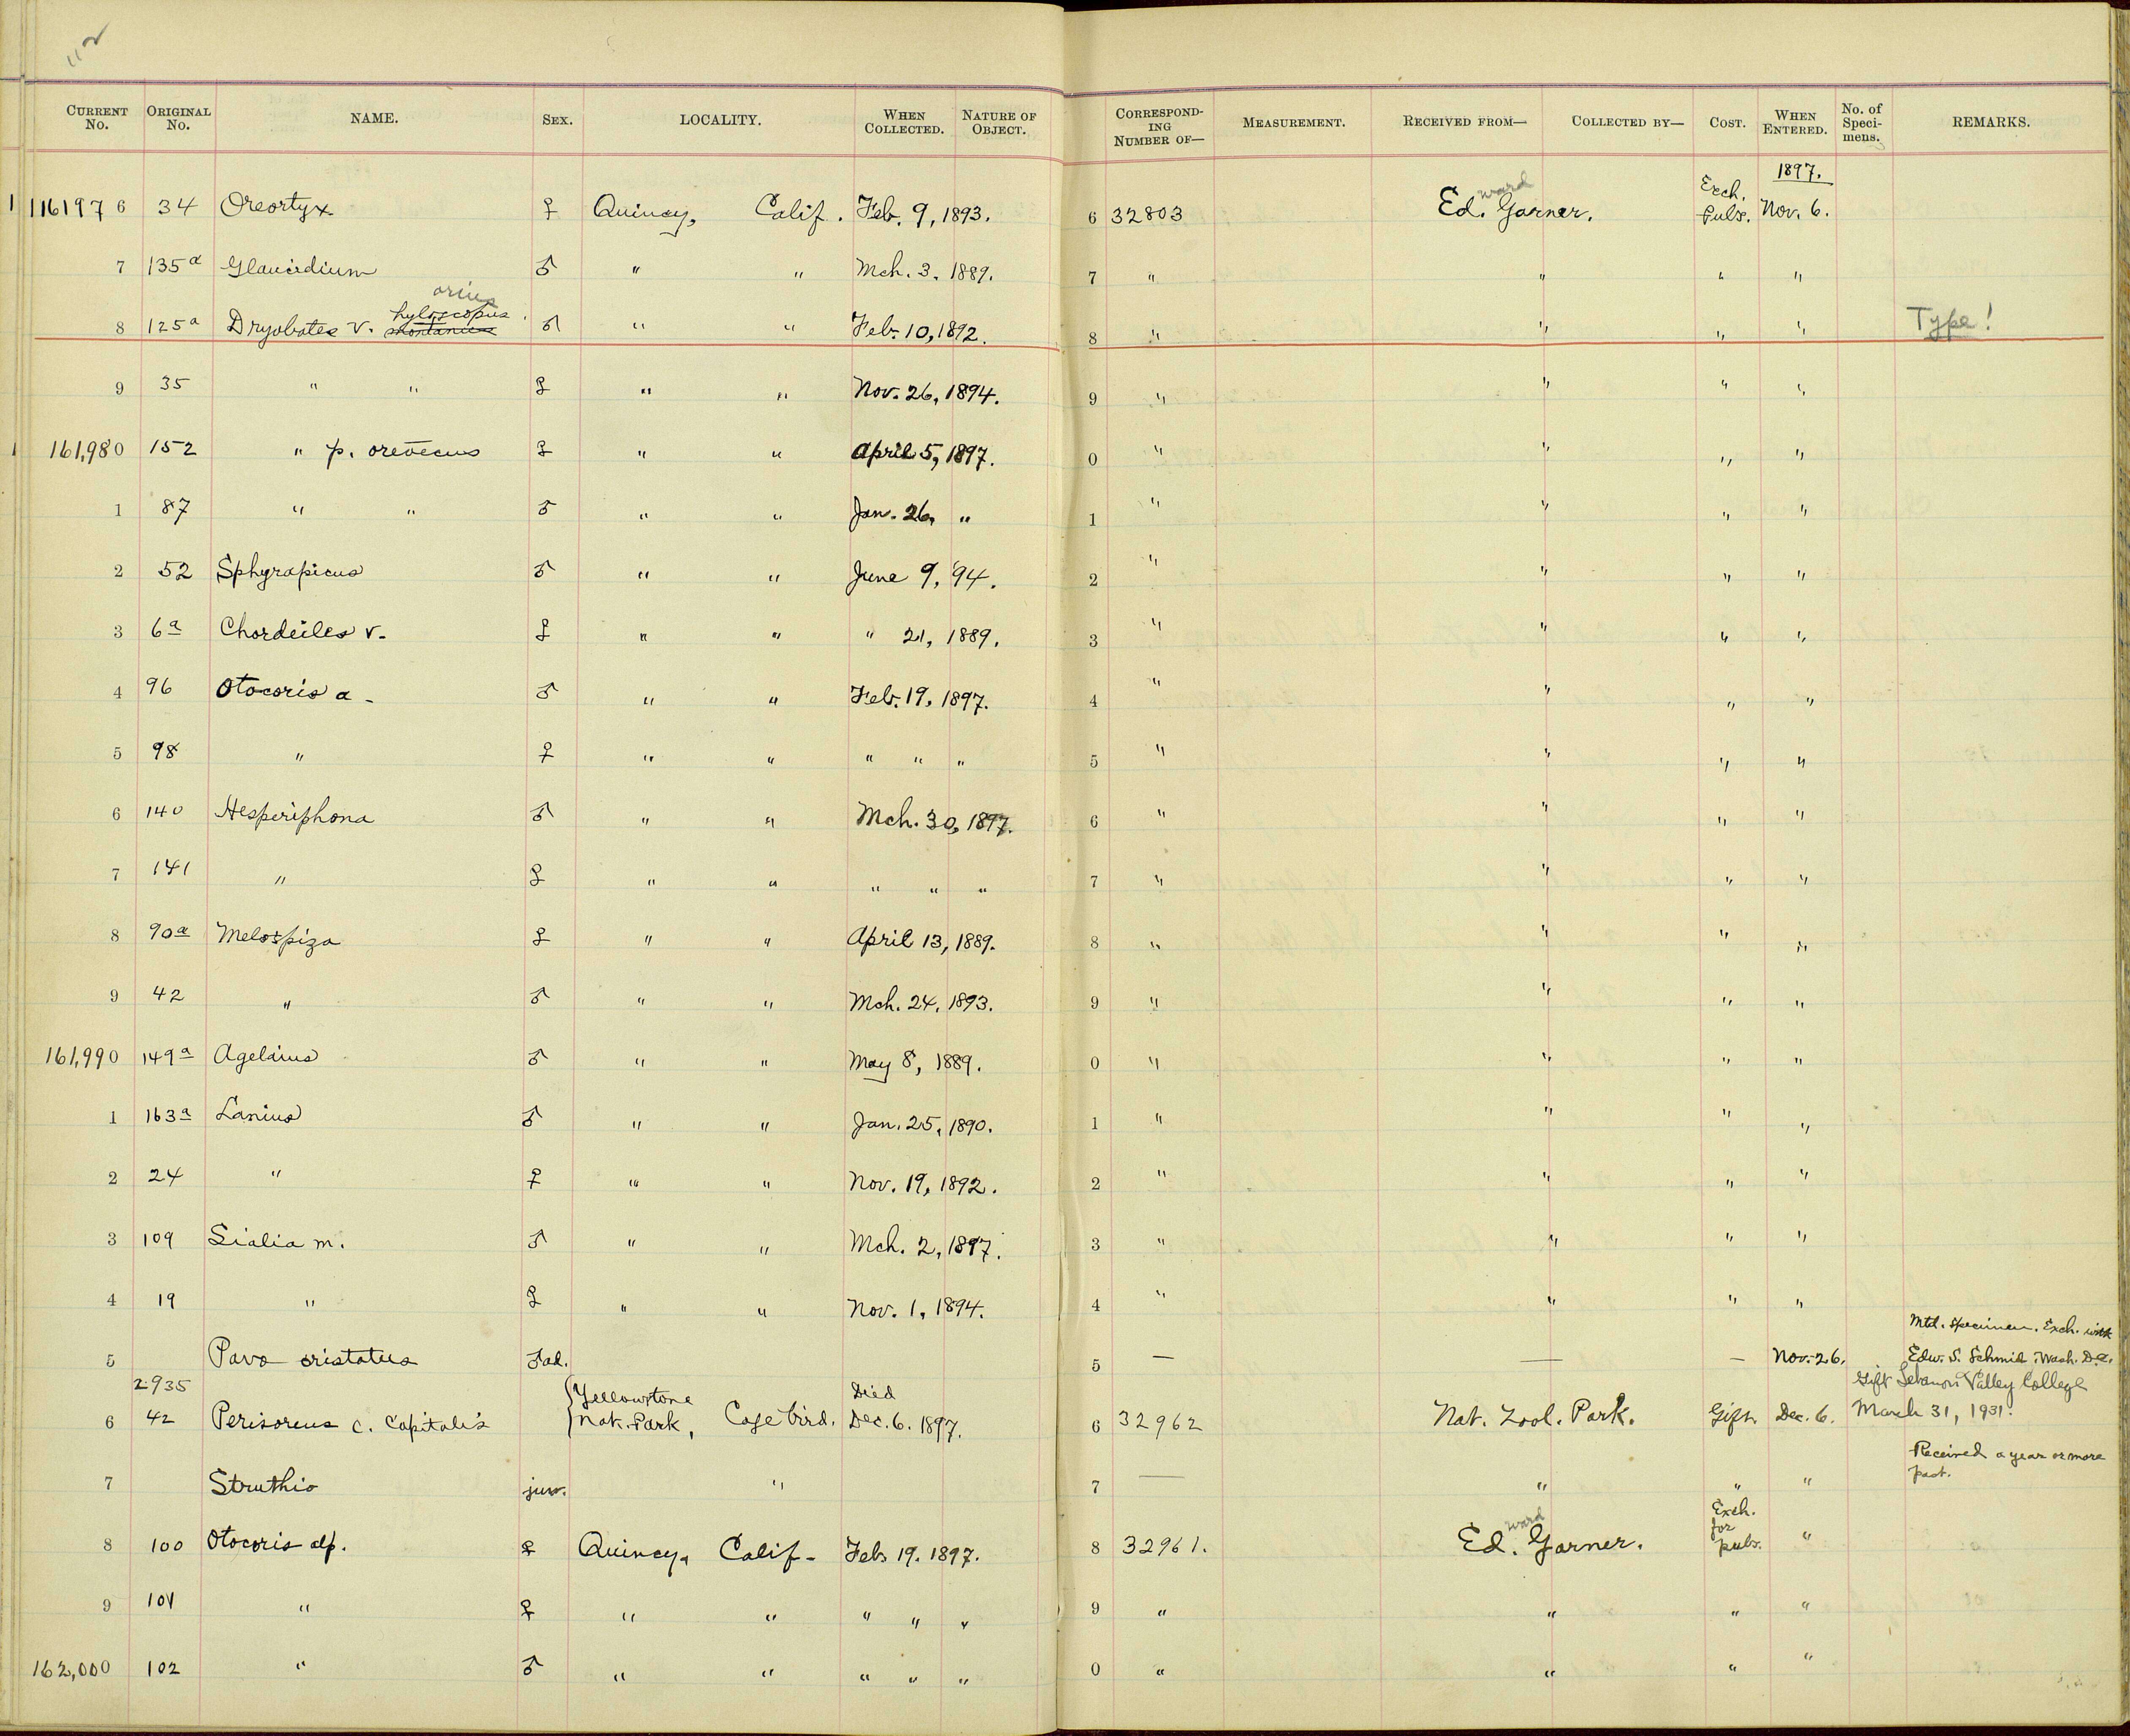 112
CURRENT No. ORIGINAL No. NAME. SEX. LOCALITY. WHEN COLLECTED. NATURE OF OBJECT. CORRESPONDING NUMBER OF— MEASUREMENT. RECEIVED FROM— COLLECTED BY— COST. WHEN ENTERED. No. of Specimens. REMARKS.
1897.
161976 34 Oreortyx ♀ Quincy, Calif. Feb. 9, 1893. 6 32803 Edward Garner. Exch. Pubs. Nov. 6.
7 135a Glaucidium ♂ " " Mch. 3, 1889. 7 " " " "
orius
hyloscopus
8 125a Dryobates v. montanus ♂ " " Feb. 10, 1892. 8 " " " " Type!
9 35 " " ♀ " " Nov. 26, 1894. 9 " " " "
161,980 152 " p. oreoecus ♀ " " April 5, 1897. 0 " " " "
1 87 " " ♂ " " Jan. 26, " 1 " " " "
2 52 Sphyrapicus ♂ " " June 9, '94. 2 " " " "
3 6a Chordeiles v. ♀ " " " 21, 1889. 3 " " " "
4 96 Otocoris a. ♂ " " Feb. 19, 1897. 4 " " " "
5 98 " ♀ " " " " " 5 " " " "
6 140 Hesperiphona ♂ " " Mch. 30, 1897. 6 " " " "
7 141 " ♀ " " " " " 7 " " " "
8 90a Melospiza ♀ " " April 13, 1889. 8 " " " "
9 42 " ♂ " " Mch. 24, 1893. 9 " " " "
161,990 149a Agelaius ♂ " " May 8, 1889. 0 " " " "
1 163a Lanius ♂ " " Jan. 25, 1890. 1 " " " "
2 24 " ♀ " " Nov. 19, 1892. 2 " " " "
3 109 Sialia m. ♂ " " Mch. 2, 1897. 3 " " " "
4 19 " ♀ " " Nov. 1, 1894. 4 " " " "
5 Pavo cristatus ad. 5 — — — Nov. 26. Mtd. specimen. Exch. with Edw. S. Schmid. Wash. D.C.
Gift Lebanon Valley College March 31, 1931.
2935
6 42 Perisoreus c. capitalis Yellowstone Nat. Park, Cage bird. Died Dec. 6. 1897. 6 32962 Nat. Zool. Park. Gift. Dec. 6.
7 Struthio juv. " 7 — " " " Received a year or more past.
8 100 Otocoris alp. ♀ Quincy, Calif. Feb. 19. 1897. 8 32961. Edward Garner. Exch. for pubs. "
9 101 " ♀ " " " " " 9 " " " "
162,000 102 " ♂ " " " " " 0 " " " "